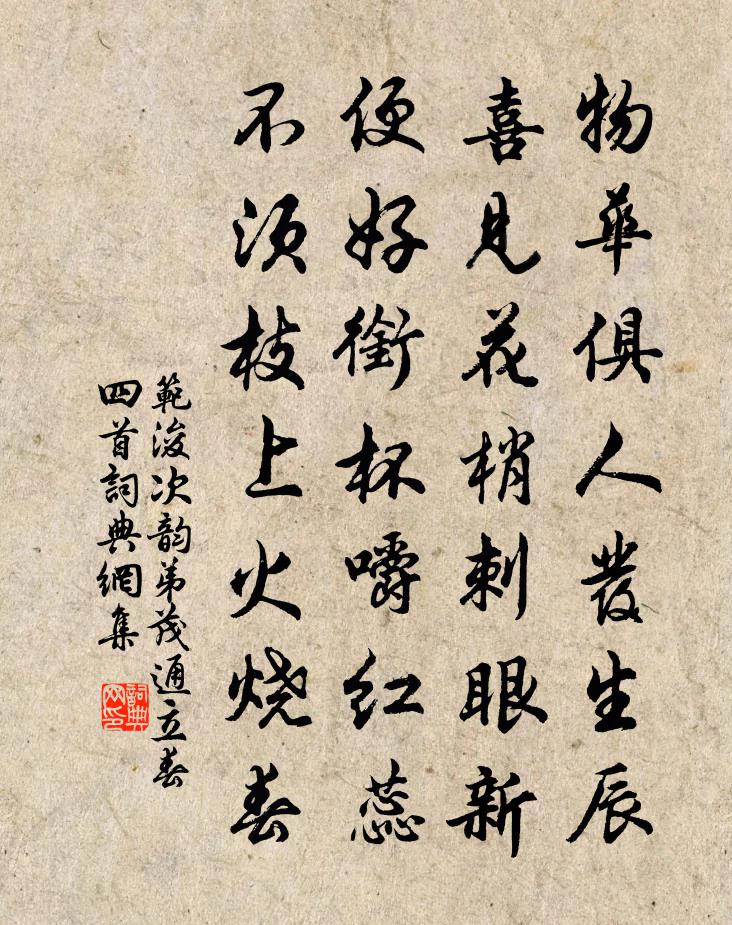 物華俱人發生辰
喜見花梢刺眼新
便好銜杯嚼紅蕊
不須枝上火烧春
範浚次韵弟茂通立春
四首詞典網集
詞典网印